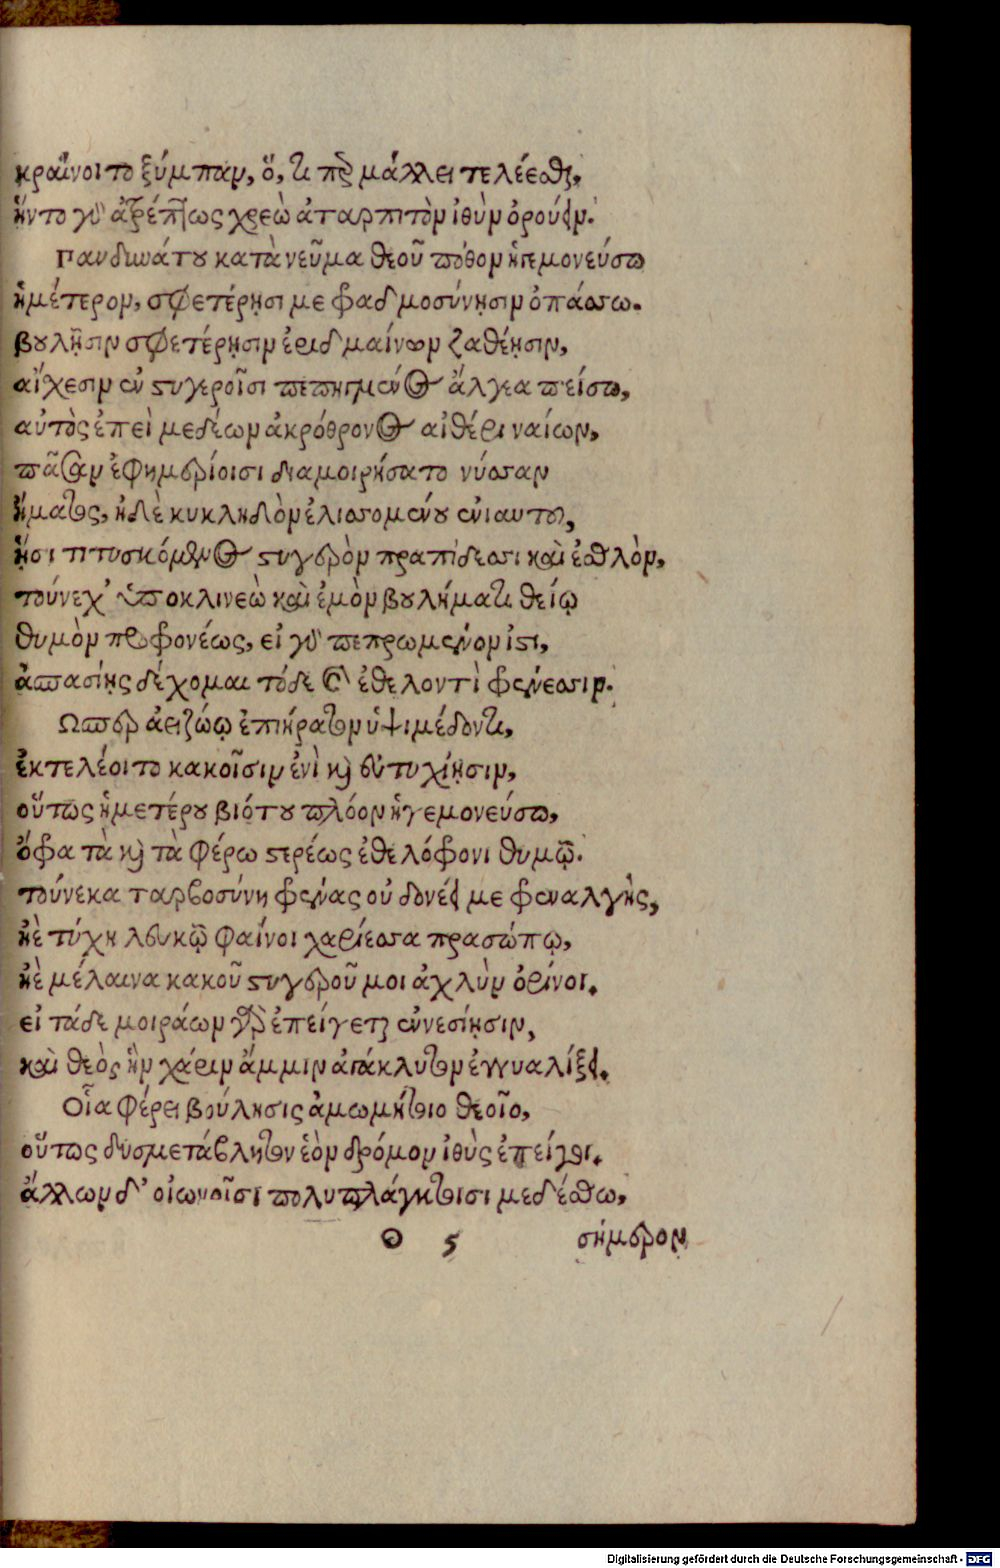 κραίνοι το ξύμπαν, ὅ, τι περ μάλλει τελέεσθαι,
ἥντο γὰρ ἀτρέπτως χρεὼ ἀταρπιτὸν ἰθὺν ὀρούειν.
Πανδινάτου κατὰ νεῦμα θεοῦ πόθον ἡγεμονεύσω
ἡμέτερον, σφετέρῃσι με φραδμοσύνῃσιν ὀπάσσω.
βουλῇσιν σφετέρῃσιν ἐριδμαίνων ζαθέῃσιν,
αἴχεσιν ἐν στυγεροῖσι πεπηγμένος ἄλγεα πείσω,
αὐτὸς ἐπεὶ μεδέων ἀκρόθρονος αἰθέρι ναίων,
πᾶσαν ἐφημερίοισι διαμοιρήσατο νύσσαν
ἤματος, ἠδὲ κυκληδὸν ἑλισσομένου ἐνιαυτοῦ,
ᾗσι τιτυσκόμενος στυγερὸν πραπίδεσσι καὶ ἐσθλὸν,
τούνεχ’ ὑποκλινεὼ καὶ ἐμὸν βουλήματι θείῳ
θυμὸν προφρονέως, εἰ γὰρ πεπρωμένον ἐστι,
ἀσπασίης δέχομαι τόδε ἐθελοντὶ φρένεσσιν.
Ὥσπερ ἀειζώῳ ἐπιήρατον ὑψιμέδοντι,
ἐκτελέοιτο κακοῖσιν ἐνὶ καὶ εὐτυχίῃσιν,
οὕτως ἡμετέρου βιότου πλόον ἡγεμονεύσω,
ὄφρα τὰ καὶ τὰ φέρω στερέως ἐθελόφρονι θυμῷ.
τούνεκα ταρβοσύνη φρένας οὐ δονέει με φρεναλγὴς,
ἠὲ τύχη λευκῷ φαίνοι χαρίεσσα προσώπῳ,
ἠὲ μέλαινα κακοῦ στυγεροῦ μοι ἀχλὺν ὀρίνοι.
εἰ τάδε μοιράων γὰρ ἐπείγεται ἐννεσίῃσιν,
καὶ θεὸς ἣν χάριν ἄμμιν ἀπάκλυτον ἐγγυαλίξει.
Οἷα φέρει βούλησις ἀμωμήτοιο θεοῖο,
οὕτως δυσμετάβλητον ἑὸν δρόμον ἰθὺς ἐπείγοι.
ἄλλων δ’ οἰωνοῖσι πολυπλάγκτοισι μεδέσθω,
Θ 5 σήμερον